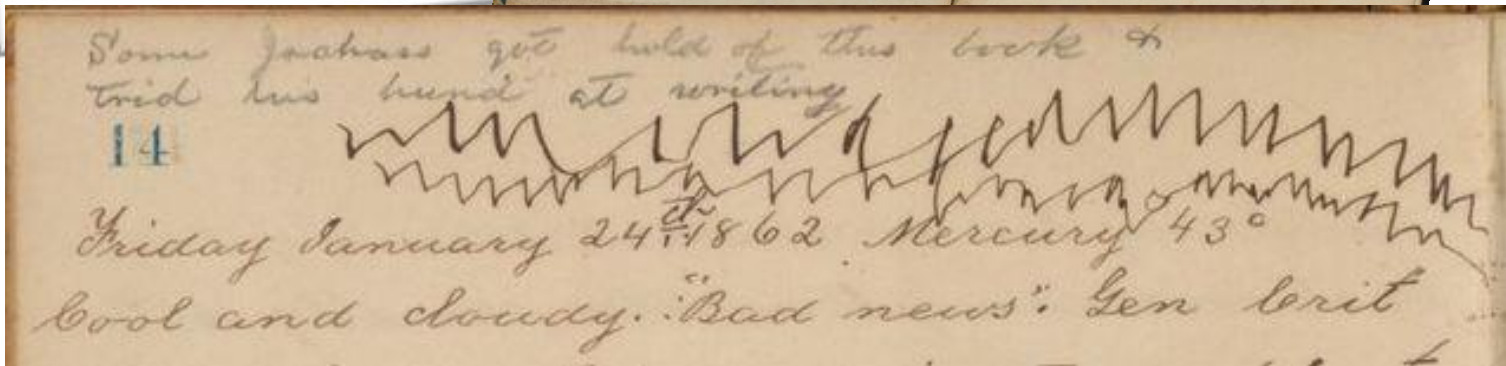 Some Jackass got hold of this book &
trid his hand at writing
14
Friday January 24th 1862. Mercury 43°
Cool and cloudy. "Bad news". Gen Crit